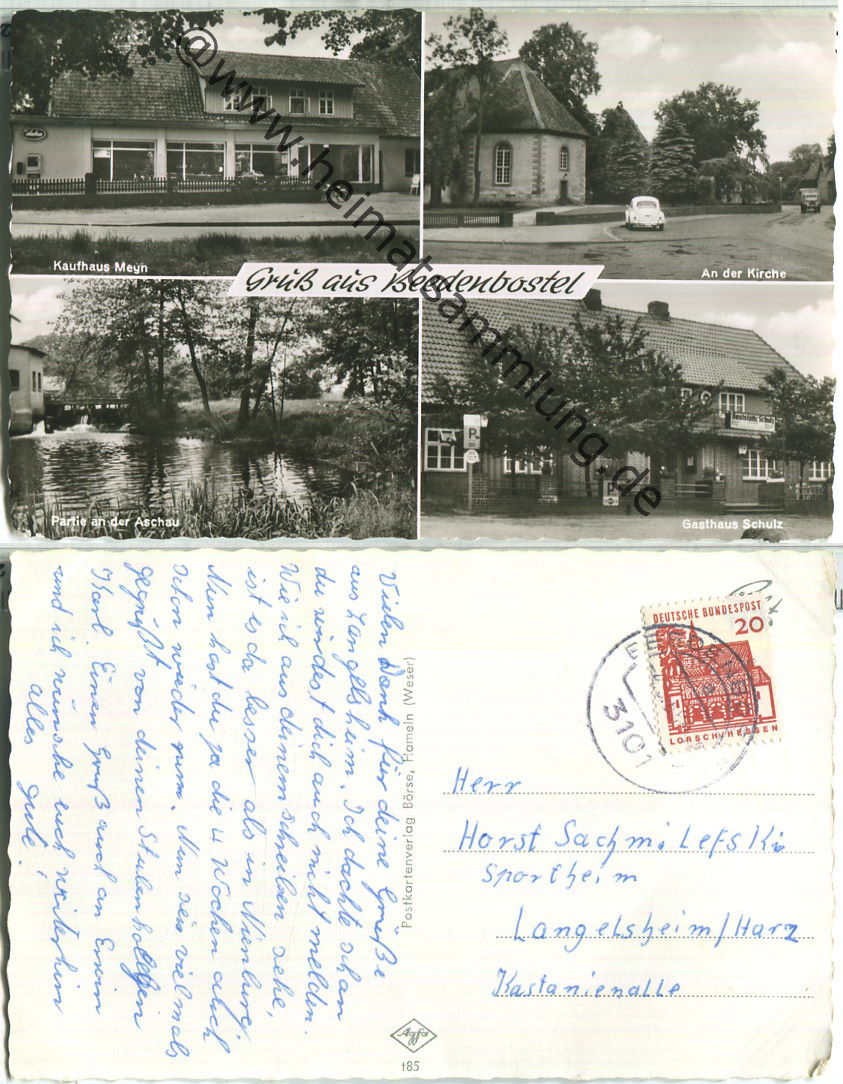 @www.heimatsammlung.de
Kaufhaus Meyn
An der Kirche
Gruß aus Beedenbostel
P
Gaststätte Schulz
Partie an der Aschau
Gasthaus Schulz
Vielen Dank für deine Grüße
aus Langelsheim. Ich dachte schon
du würdest dich auch nicht melden.
Wie ich aus deinem schreiben sehe,
ist es da besser als in Nienburg.
Nun hast du ja die 4 Wochen auch
schon wieder rum. Nun sei vielmals
gegrüßt von deinen Stubenkollegen
Karl. Einen Gruß auch an Erwin
und ich wünsche euch weiterhin
alles gute!
Postkartenverlag Börse, Hameln (Weser)
Agfa
t85
DEUTSCHE BUNDESPOST
20
LORSCH/HESSEN
3101
Herr
Horst Sachmilefski
Sportheim
Langelsheim/Harz
Kastanienalle